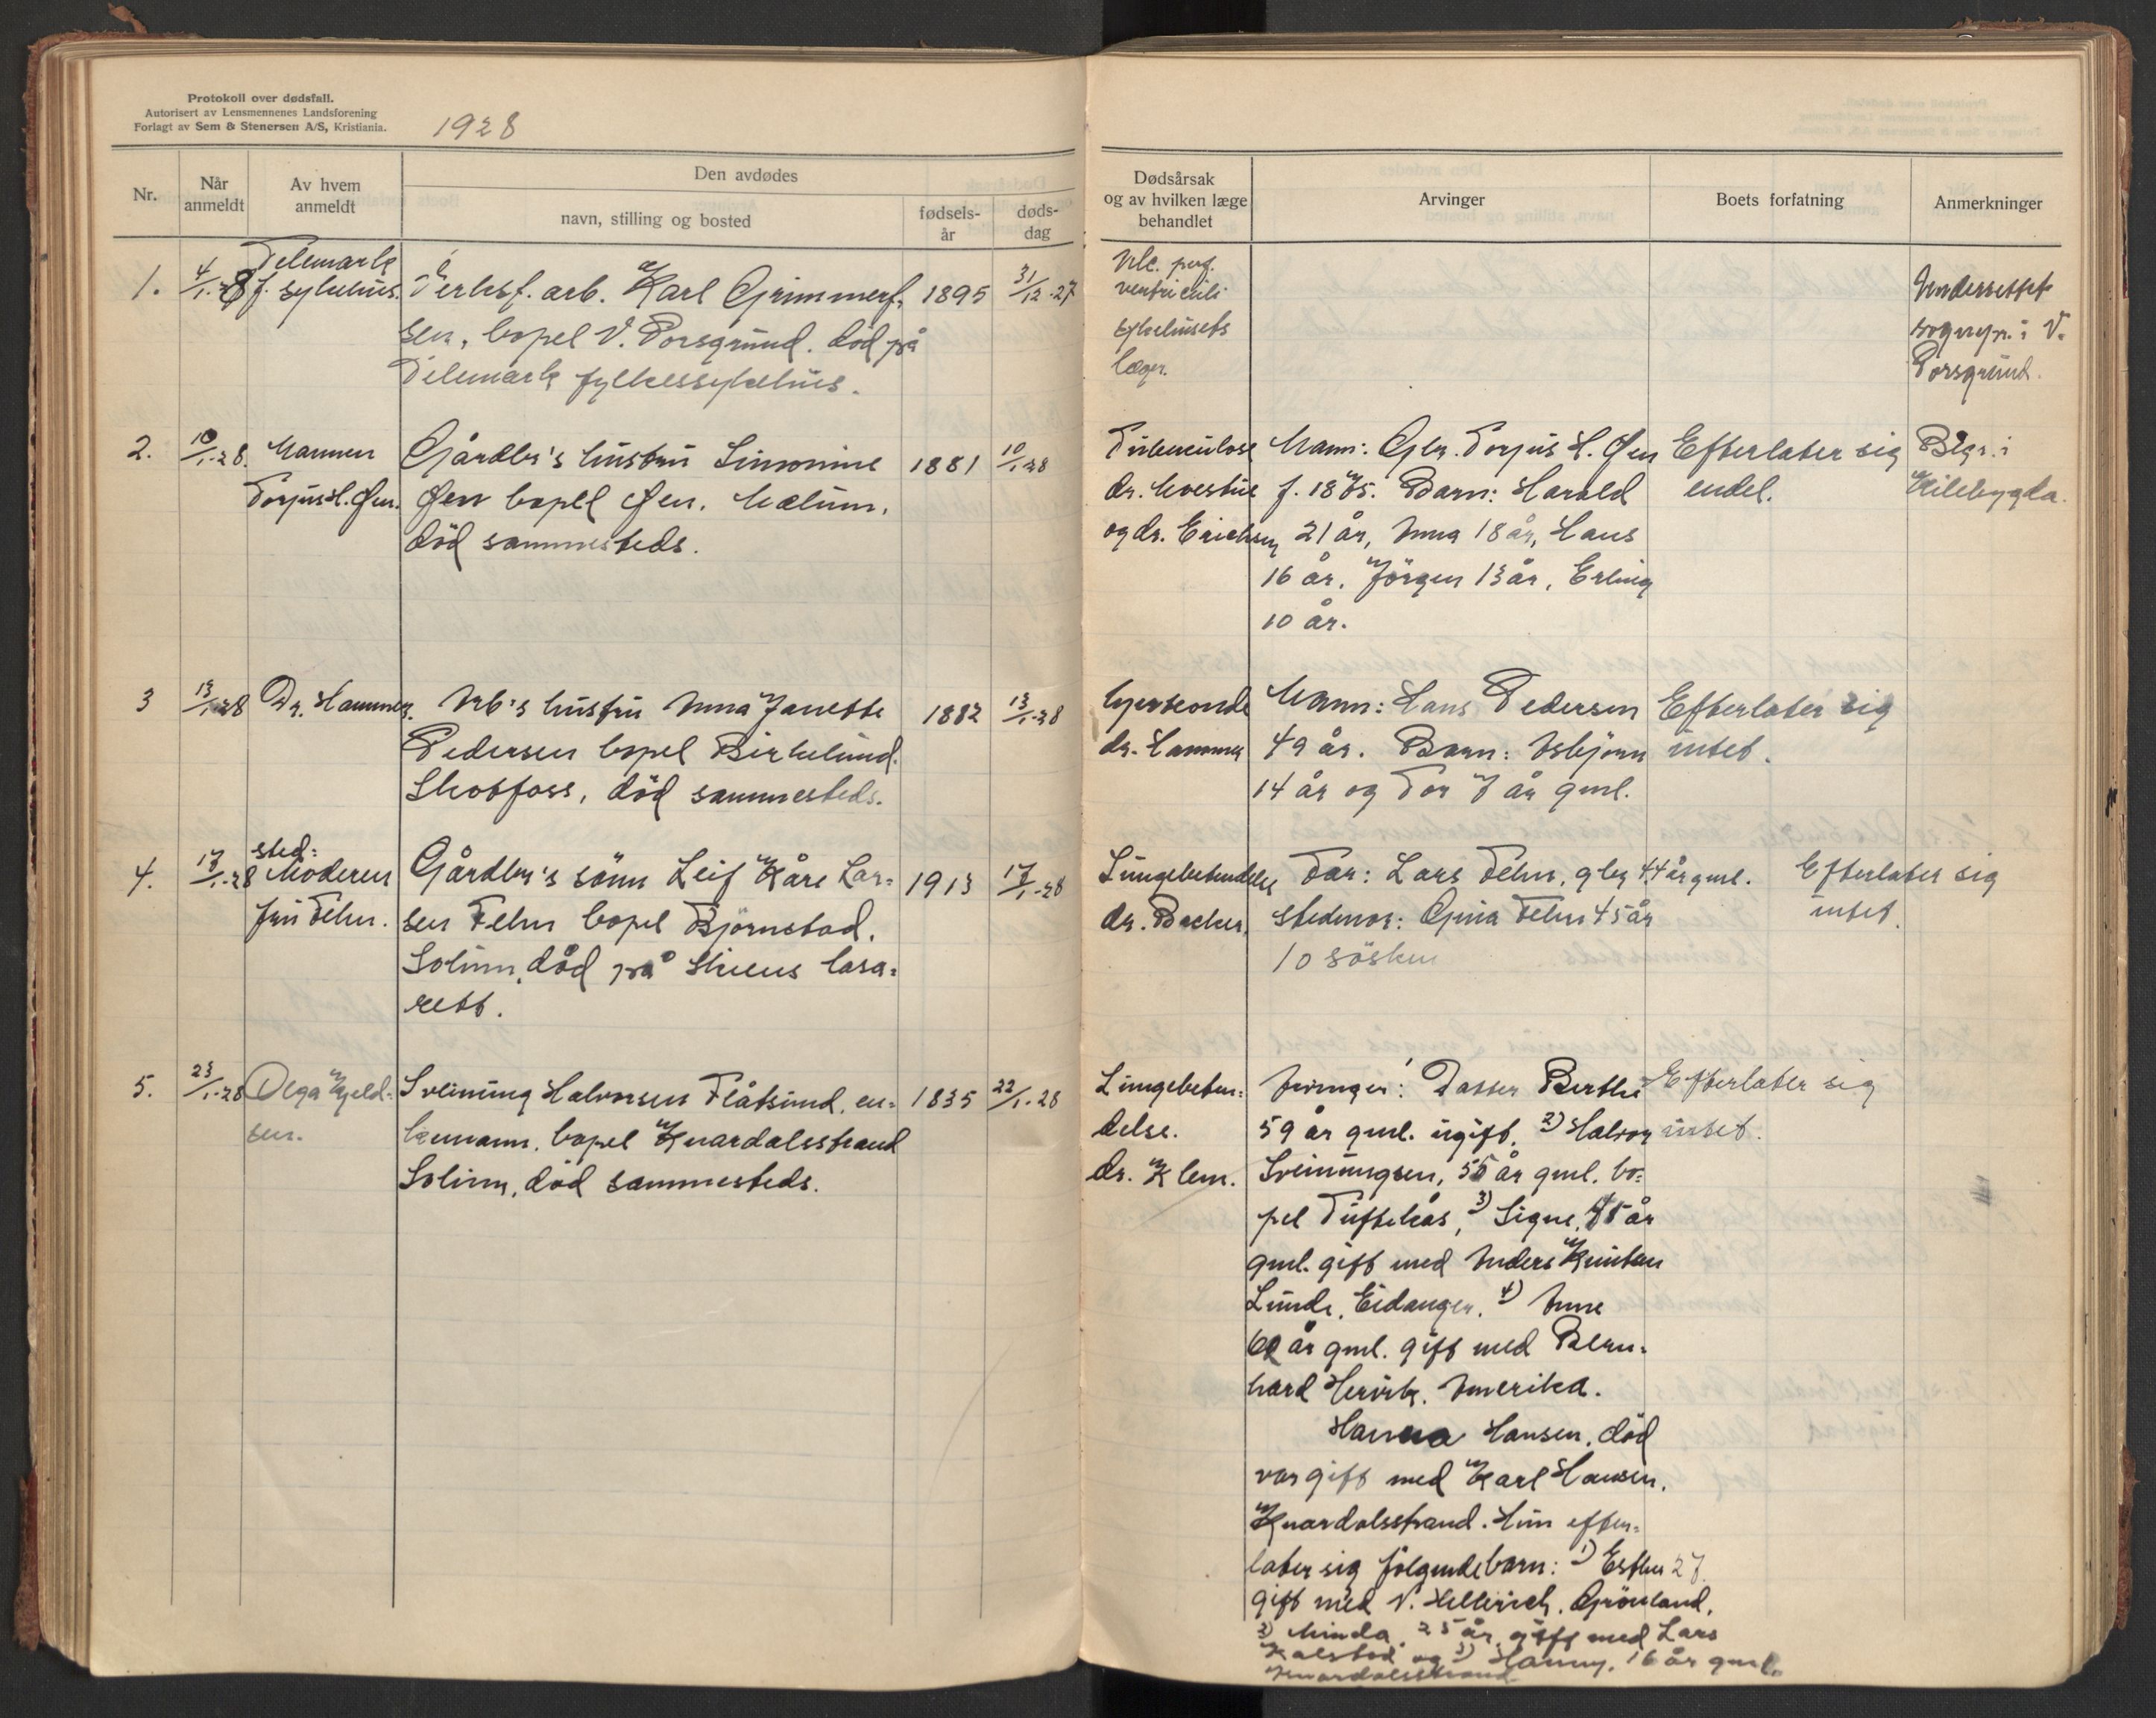 Protokoll over dødsfall.
Autorisert av Lensmennenes Landsforening
Forlagt av Sem & Stenersen A/S, Kristiania.
1928
Nr.
Når anmeldt
Av hvem anmeldt
Den avdødes
navn, stilling og bosted
fødsels-år
døds-dag
Dødsårsak og av hvilken læge behandlet
Arvinger
Boets forfatning
Anmerkninger
1.
4/1.28
Telemark
f. sykehus.
Verksf. arb. Karl
sen, bopel V. Porsgrund. död på
Telemark fylkessykehus.
1895
31/12.27
Ulc. perf.
ventriculi
sykehusets
læger.
Underrettet
sognepr. i V.
Porsgrund.
2.
10/1.28.
Mannen
Torjus H. Øen.
Gårdbr's hustru Simonine
Øen bopel Øen. Mælum.
död sammesteds.
1881
10/1.28
Tuberculose
dr. Moestue
og dr. Erichsen
Mann: Gbr. Torjus H. Øen
f. 1875. Barn: Harald
21 år, Anna 18 år, Hans
16 år, Jörgen 13 år, Erling
10 år.
Efterlater sig
endel.
Begr. i
Kilebygda.
3
13/1.28
Dr. Hammer.
Arb's hustru Anna Janette
Pedersen bopel Birkelund.
Skotfoss, död sammesteds.
1882
13/1.28
hjerteonde
dr. Hammer
Mann: Hans Pedersen
49 år. Barn: Asbjörn
14 år og Tor 7 år gml.
Efterlater sig
intet.
4.
17/1.28
sted=
Moderen
fru Fehn.
Gårdbr's sönn Leif Kåre Lar=
sen Fehn bopel Björnstad.
Solum, död på Skiens lasa=
rett.
1913
17/1.28
Lungebetendelse
dr. Backer.
Far: Lars Fehn, gbr 44 år gml.
stedmor: Gina Fehn 45 år
10 sösken
Efterlater sig
intet.
5.
23/1.28
Olga Kjeld=
sen.
Sveinung Halvorsen Flåtsund, en=
kemann, bopel Knardalsstrand
Solum, död sammesteds.
1835
22/1.28
Lungebeten=
delse.
dr. Klem.
Arvinger: Datter Berthe
59 år gml. ugift. 2) Halvor
Sveinungsen, 55 år gml. bo=
pel Tuftekås, 3) Signe, 45 år
gml. gift med Anders Knutsen
Lunde, Eidanger. 4) Anne
60 år gml. gift med Bern=
hard Amerika.
Hanna Hansen, död
var gift med Karl Hansen.
Knardalsstrand. Hun efter=
later sig fölgende barn: 1) Esther 27.
gift med V. Grönland.
2) Minda, 25 år, gift med Lars
Kalstad og 3) Hanny, 16 år gml.
Knardalsstrand
Efterlater sig
intet.